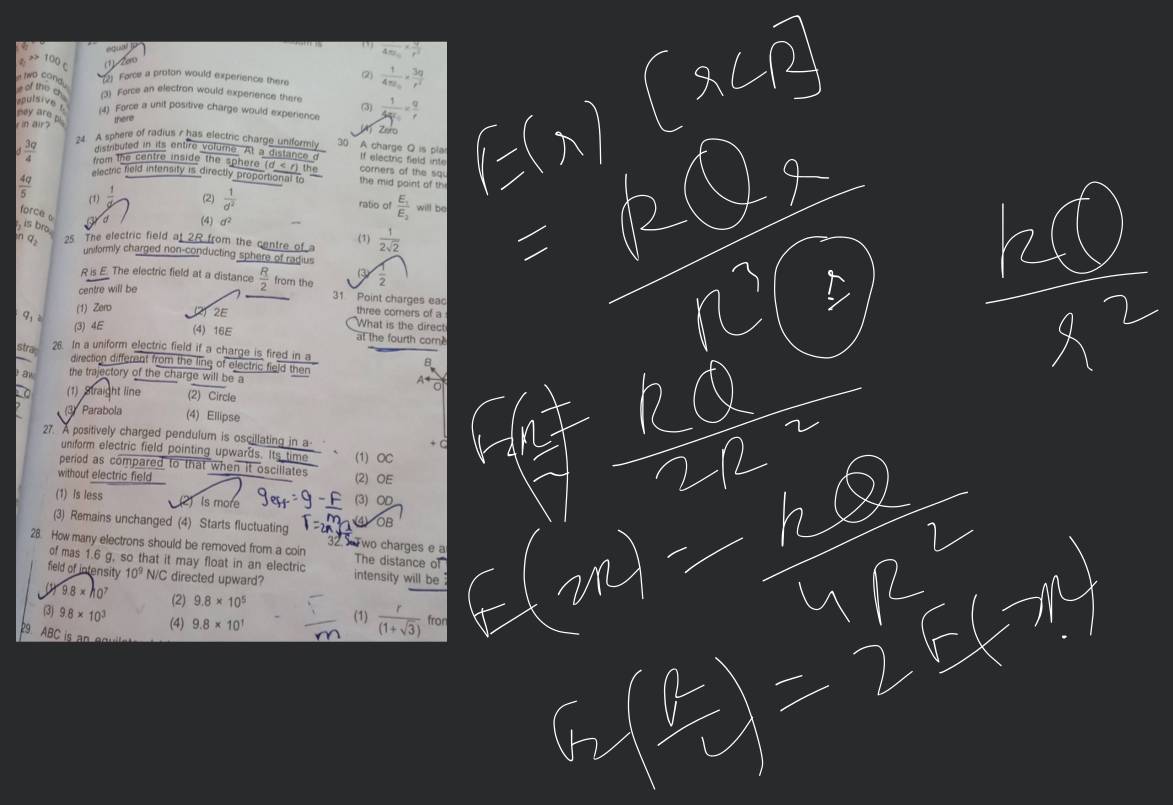 equal to
(1) Zero
(2) Force a proton would experience there
(3) Force an electron would experience there
(4) Force a unit positive charge would experience
there
24. A sphere of radius r has electric charge uniformly
distributed in its entire volume. At a distance d
from the centre inside the sphere (d < r) the
electric field intensity is directly proportional to
(1) 1/d
(2) 1/d²
(3) d
(4) d²
25. The electric field at 2R from the centre of a
uniformly charged non-conducting sphere of radius
R is E. The electric field at a distance R/2 from the
centre will be
(1) Zero
(2) 2E
(3) 4E
(4) 16E
26. In a uniform electric field if a charge is fired in a
direction different from the line of electric field then
the trajectory of the charge will be a
(1) Straight line
(2) Circle
(3) Parabola
(4) Ellipse
27. A positively charged pendulum is oscillating in a
uniform electric field pointing upwards. Its time
period as compared to that when it oscillates
without electric field
(1) Is less
(2) Is more
g eff = g - F/m
(3) Remains unchanged (4) Starts fluctuating
28. How many electrons should be removed from a coin
of mas 1.6 g, so that it may float in an electric
field of intensity 10⁹ N/C directed upward?
(1) 9.8 × 10⁷
(2) 9.8 × 10⁵
(3) 9.8 × 10³
(4) 9.8 × 10¹
29. ABC is an
>> 100 C
3q/4
4q/5
force
is bro
(2) 1/4πε₀ × 3q/r²
(3) 1/4πε₀ × q/r
(4) Zero
30 A charge Q is pla
If electric field inte
corners of the squ
the mid point of the
ratio of E₁/E₂ will be
(1) 1/2√2
(3) 1/2
31. Point charges eac
three corners of a
What is the direct
at the fourth corne
B
A
O
+
(1) OC
(2) OE
(3) OD
(4) OB
32. Two charges e a
The distance of
intensity will be
(1) r/(1+√3) from
E(r) [r<R]
= kQr/R³
kQ/r²
E(R/2) = kQ/2R²
E(2R) = kQ/4R²
E(R/2) = 2E(2R)